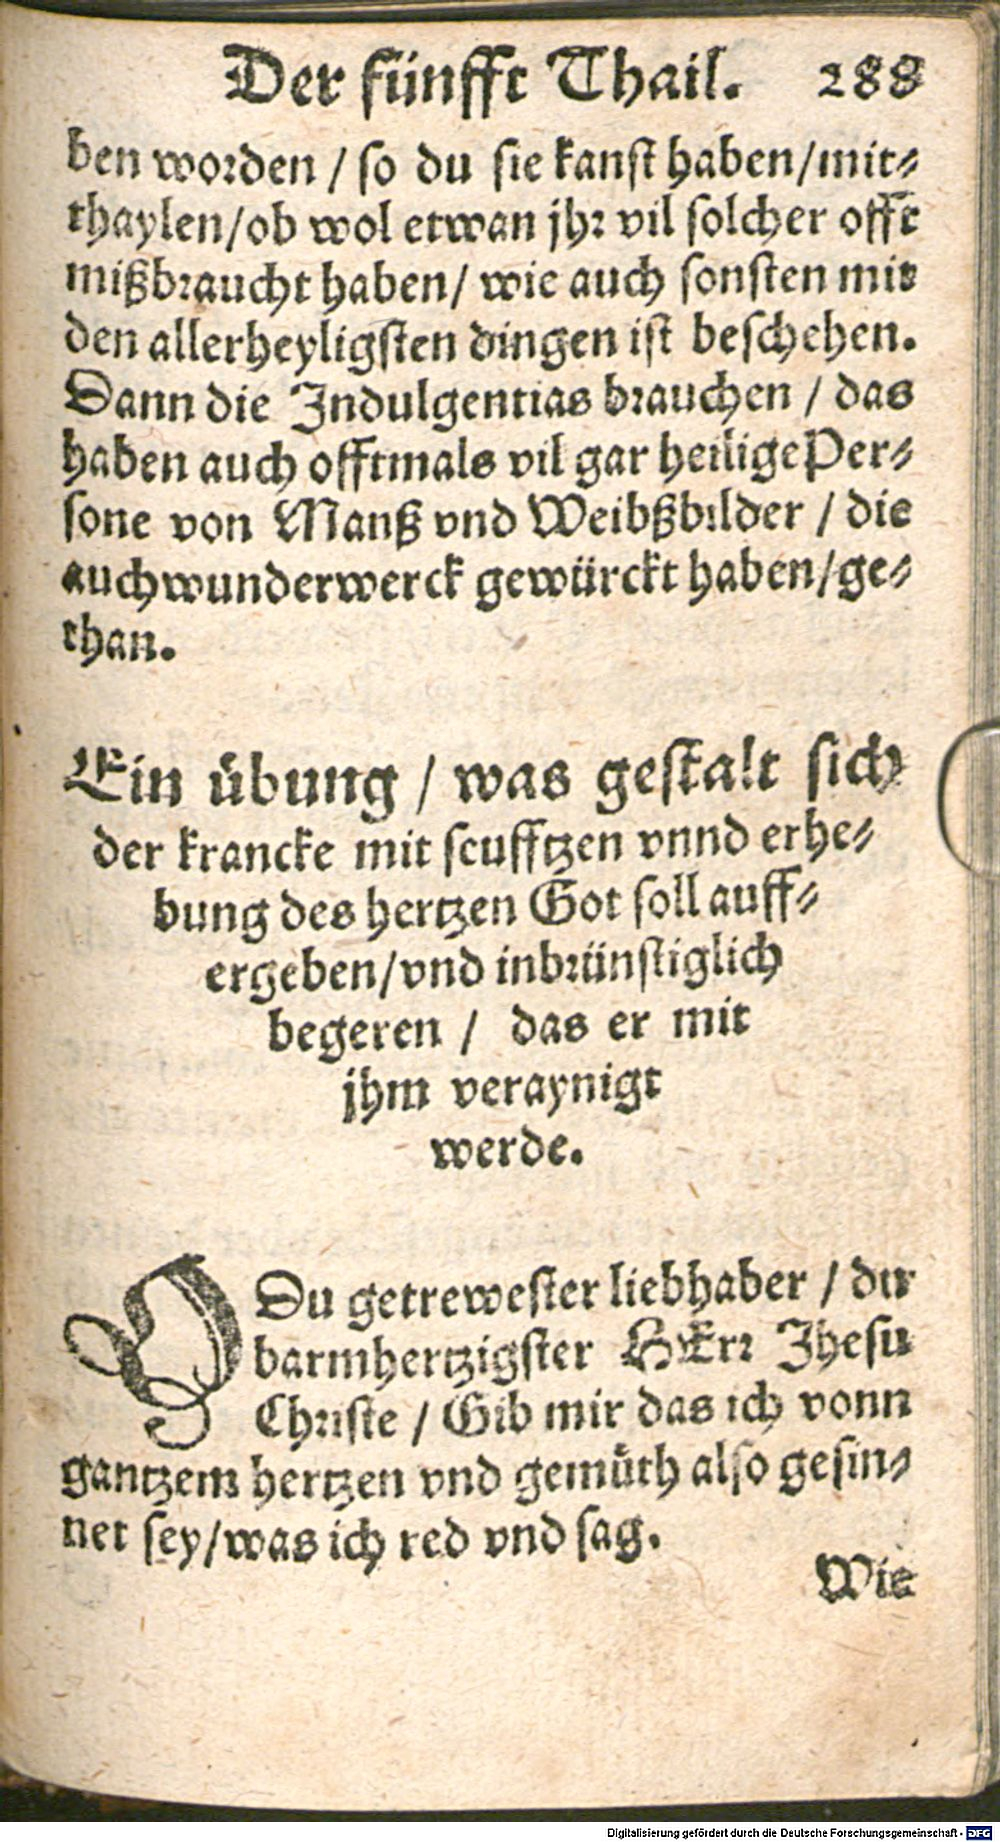 Der fünfft Thail. 288
ben worden / so du sie kanst haben/mit-
thaylen/ob wol etwan jhr vil solcher offt
mißbraucht haben/ wie auch sonsten mit
den allerheyligsten dingen ist beschehen.
Dann die Indulgentias brauchen / das
haben auch offtmals vil gar heilige Per-
sone von Manß vnd Weibßbilder / die
auch wunderwerck gewürckt haben/ge-
than.
Ein übung / was gestalt sich
der krancke mit seufftzen vnnd erhe-
bung des hertzen Got soll auff-
ergeben/vnd inbrünstiglich
begeren / das er mit
jhm veraynigt
werde.
O Du getrewester liebhaber / du
barmhertzigster HErr Jhesu
Christe / Gib mir das ich vonn
gantzem hertzen vnd gemüth also gesin-
net sey/was ich red vnd sag.
Wie
Digitalisierung gefördert durch die Deutsche Forschungsgemeinschaft - DFG